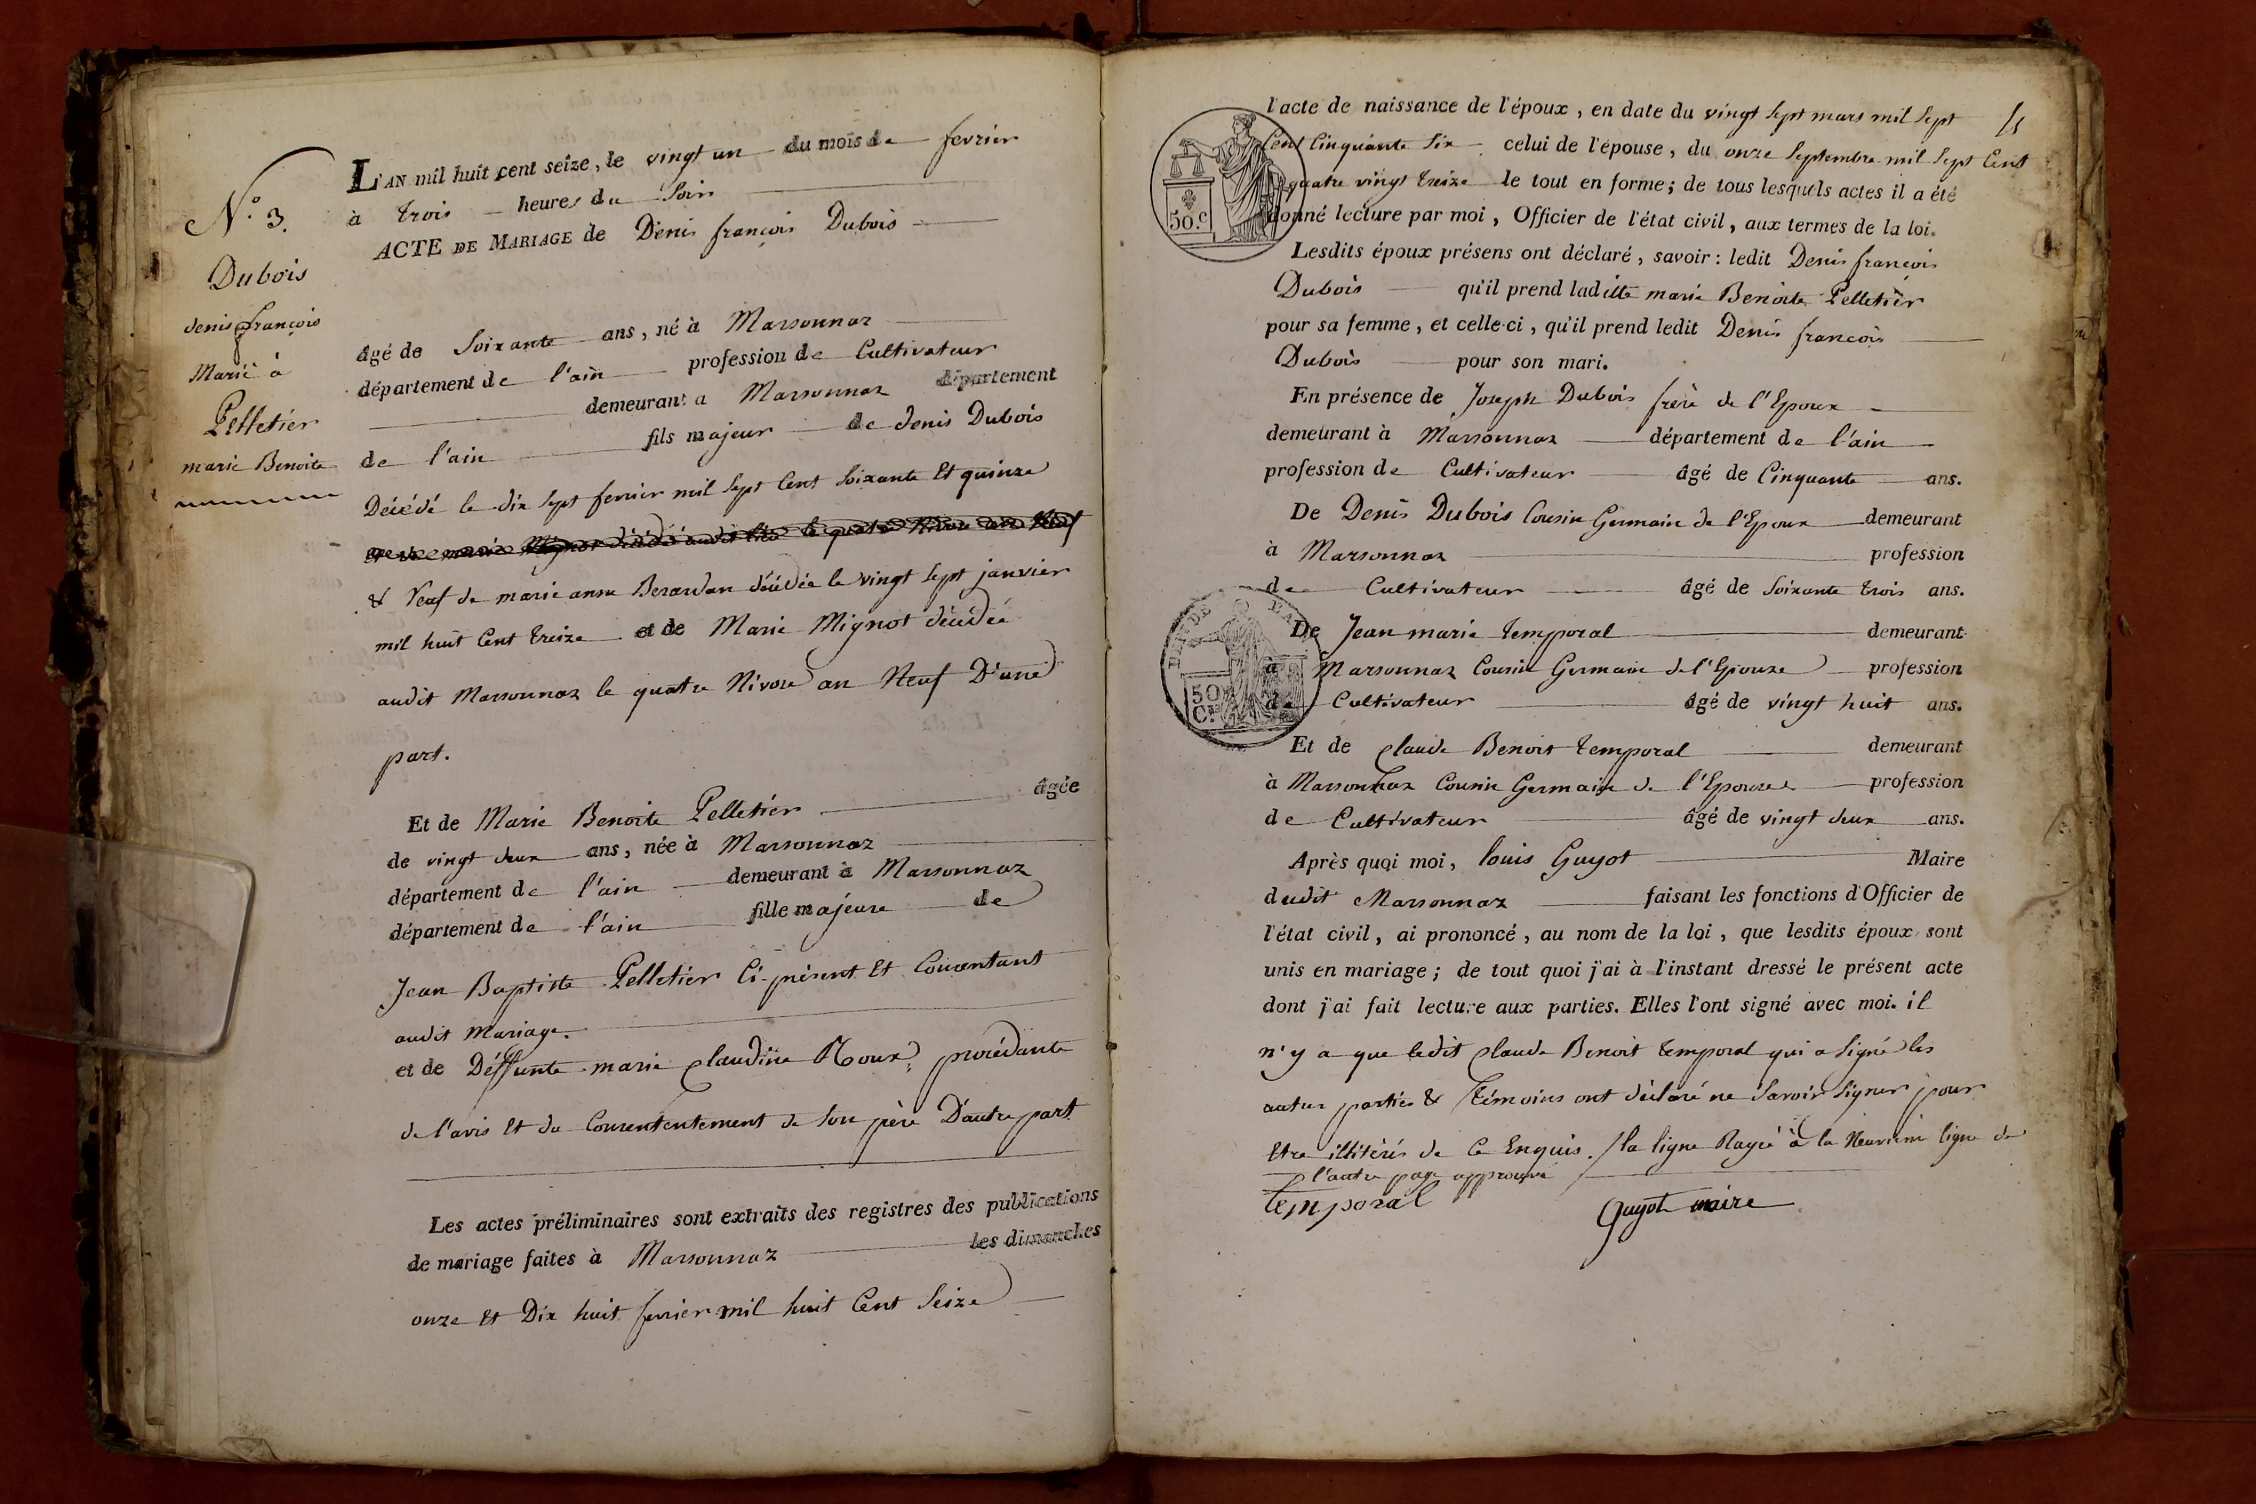 N.° 3.
Dubois
denis françois
Marié à
Pelletier
marie Benoite
L'AN mil huit cent seize, le vingt un du mois de fevrier
à trois heures du Soir
ACTE DE MARIAGE de Denis françois Dubois
âgé de Soixante ans, né à Marsonnaz
département de l'ain profession de Cultivateur
demeurant a Marsonnaz département
de l'ain fils majeur de denis Dubois
Décédé le dix sept fevrier mil sept Cent Soixante Et quinze
& Veuf de marie anne Berardan décédée le vingt sept janvier
mil huit Cent treize et de Marie Mignot décédée
audit Marsonnaz le quatre Nivose an Neuf D'une
part.
Et de Marie Benoite Pelletier âgée
de vingt deux ans, née à Marsonnaz
département de l'ain demeurant à Marsonnaz
département de l'ain fille majeure de
Jean Baptiste Pelletier Ci-présent Et Consentant
audit Mariage.
et de Déffunte marie Claudine Roux, procédante
de l'avis Et du Consententement de Son père D'autre part
Les actes préliminaires sont extraits des registres des publications
de mariage faites à Marsonnaz les dimanches
onze Et Dix huit fevrier mil huit Cent Seize
l'acte de naissance de l'époux, en date du vingt Sept mars mil Sept
Cent Cinquante Six celui de l'épouse, du onze Septembre mil Sept Cent
quatre vingt treize le tout en forme; de tous lesquels actes il a été
donné lecture par moi, Officier de l'état civil, aux termes de la loi.
50.c
Lesdits époux présens ont déclaré, savoir: ledit Denis françois
Dubois qu'il prend laditte marie Benoite Pelletier
pour sa femme, et celle-ci, qu'il prend ledit Denis françois
Dubois pour son mari.
En présence de Joseph Dubois frère de l'Epoux
demeurant à Marsonnaz département de l'ain
profession de Cultivateur âgé de Cinquante ans.
De Denis Dubois Cousin Germain de l'Epoux demeurant
à Marsonnaz profession
de Cultivateur âgé de Soixante trois ans.
De Jean marie temporal demeurant
à Marsonnaz Cousin Germain de l'Epouze profession
de Cultivateur âgé de vingt huit ans.
50
Cs
Et de Claude Benoit temporal demeurant
à Marsonnaz Cousin Germain de l'Epouze profession
de Cultivateur âgé de vingt deux ans.
Après quoi moi, louis Guyot Maire
dudit Marsonnaz faisant les fonctions d'Officier de
l'état civil, ai prononcé, au nom de la loi, que lesdits époux sont
unis en mariage; de tout quoi j'ai à l'instant dressé le présent acte
dont j'ai fait lecture aux parties. Elles l'ont signé avec moi. il
n'y a que ledit Claude Benoit temporal qui a Signé les
autres parties & témoins ont déclaré ne Savoir Signer pour
Etre illitérés de Ce Enquis. / la ligne Rayée à la Neuvieme ligne de
l'autre page approuvé
temporal
Guyot maire